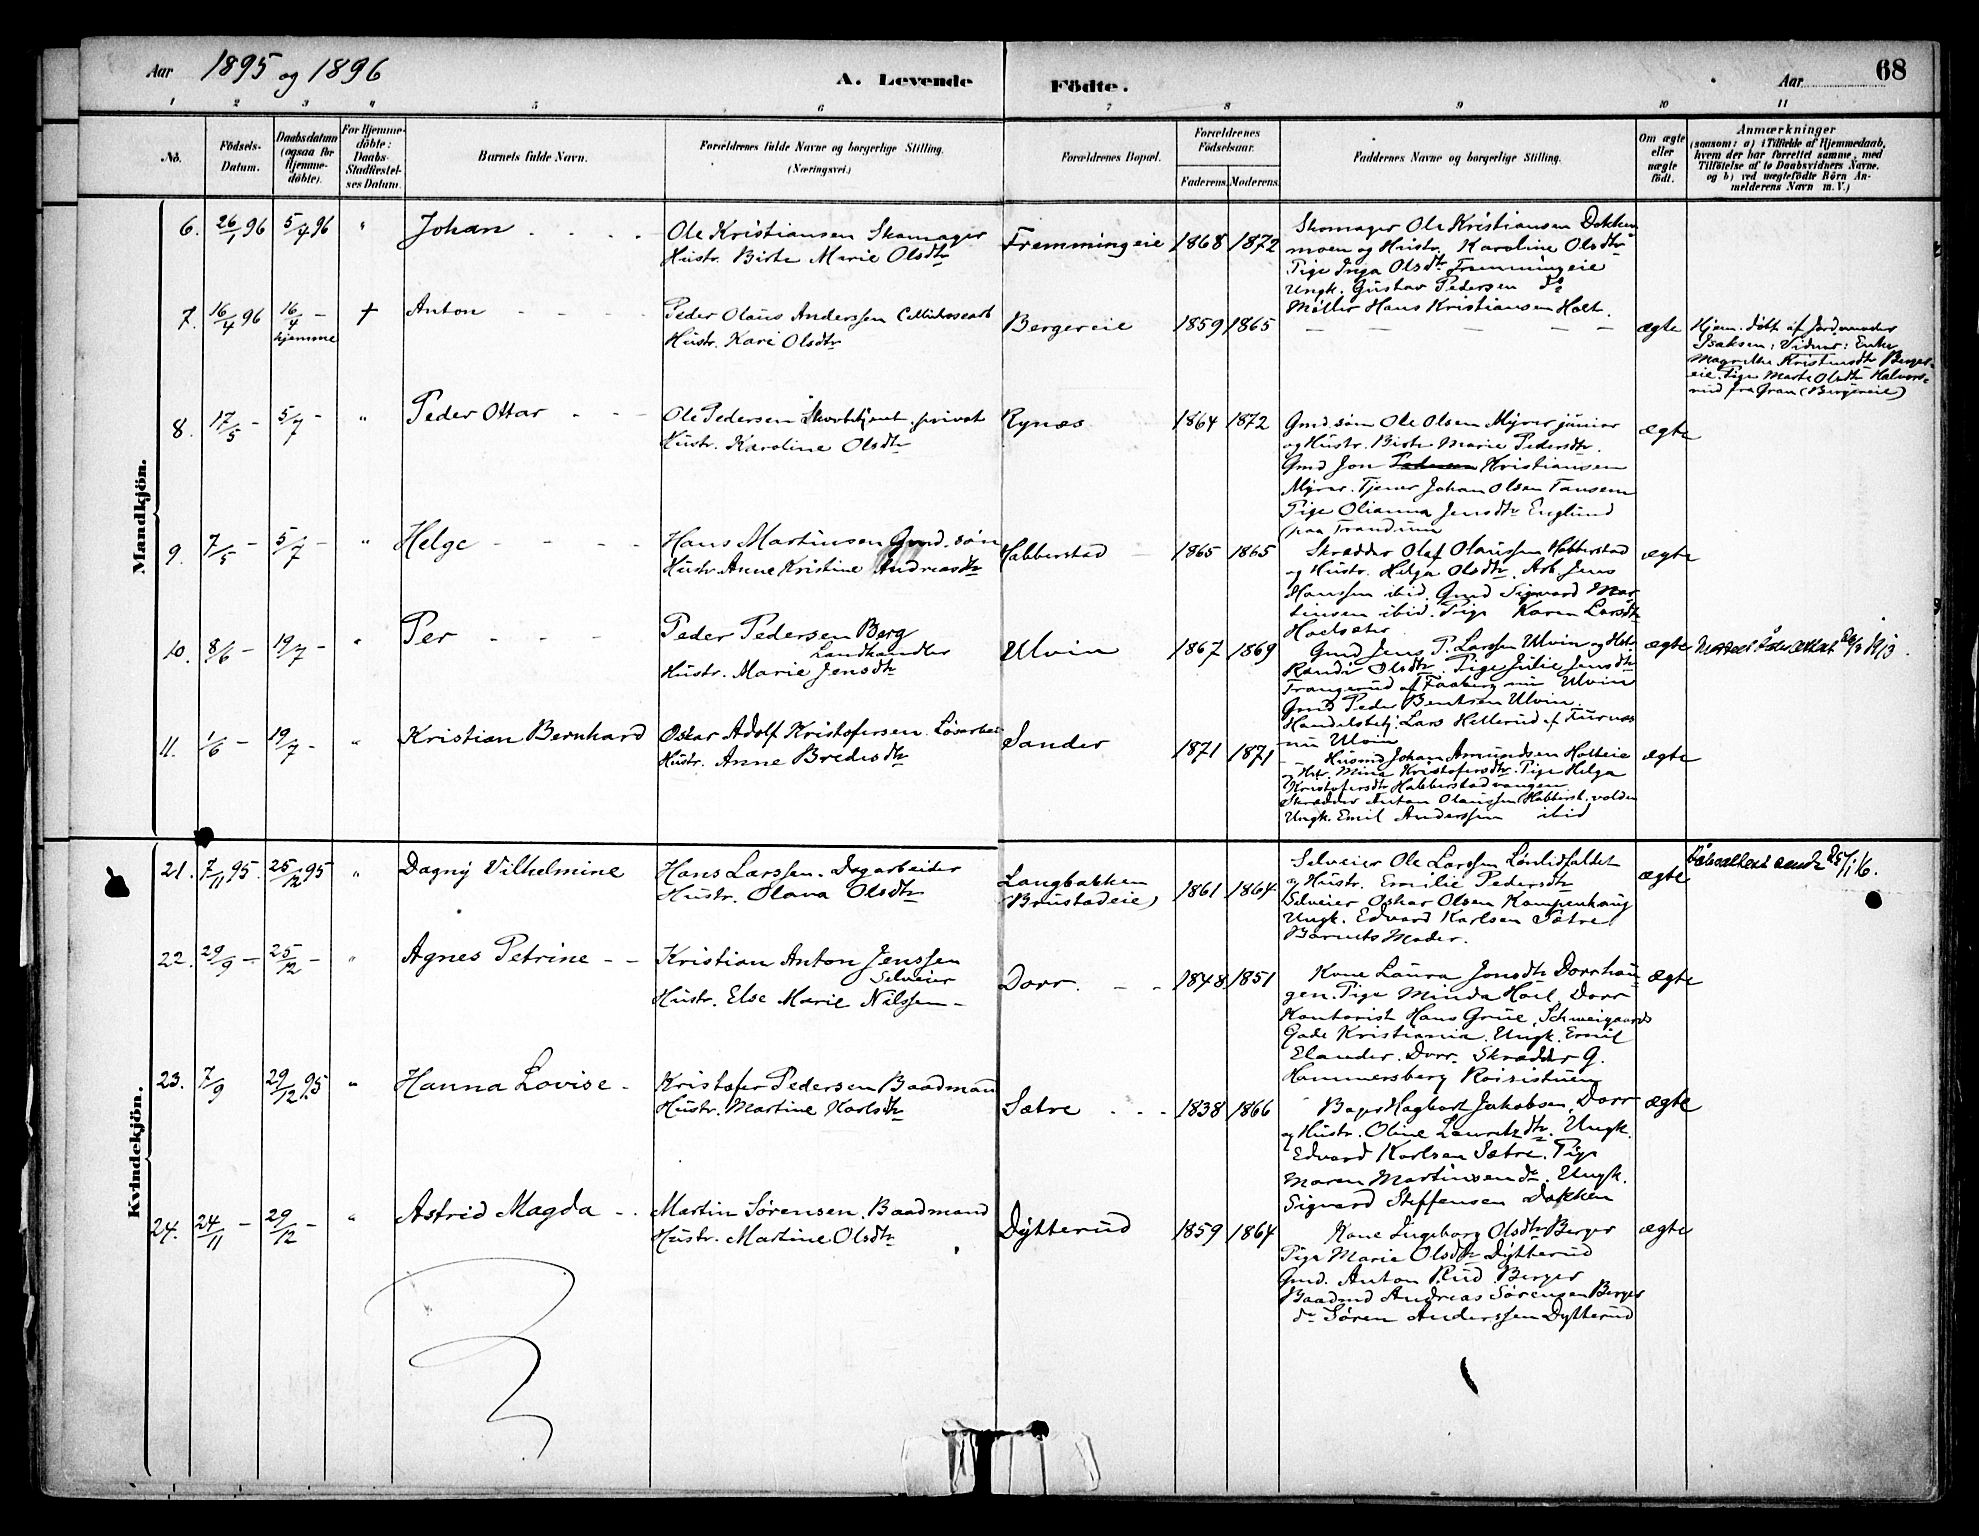 Aar 1895 og 1896
A. Levende Födte.
Aar
68
1 2 3 " 5 6 7 8 9 10 11
No.
Födsels-Datum.
Daabsdatum (ogsaa for Hjemme-döbte).
For Hjemme-döbte: Daabs-Stadfæstel-ses Datum.
Barnets fulde Navn.
Forældrenes fulde Navne og borgerlige Stilling. (Næringsvei.)
Forældrenes Bopæl.
Forældrenes Födselsaar.
Faderens. Moderens.
Faddernes Navne og borgerlige Stilling.
Om ægte eller uægte födt.
Anmærkninger
(saasom: a) i Tilfælde af Hjemmedaab,
hvem der har forrettet samme, med
Tilföielse af to Daabsvidners Navne,
og b) ved uægtefödte Börn An-
melderens Navn m.V.)
Mandkjön.
6. 26/1 96 5/4 96 " Johan
Ole Kristiansen Skomager
Hustr. Birte Marie Olsdtr
Fremmingeie 1868 1872
Skomager Ole Kristiansen Dokken
moen og Hustr. Karoline Olsdtr
Pige Inga Olsdtr Fremmingeie
Ungk. Gustav Pedersen do
Møller Hans Kristiansen Holt.
7. 16/4 96 16/4 - hjemme † Anton
Peder Olaus Anderssen
Hustr. Kari Olsdtr
Bergereie 1859 1865 — — — — — ægte
Hjem. døbt af Jordmoder
Isaksen; Vidner: Enke
Magrethe Kristiansdtr Berger-
eie. Pige Marte Olsdtr Halvors-
rud fra Gran (Bergereie)
8. 17/5 - 5/7 - " Peder Ottar
Ole Pedersen privat
Hustr. Karoline Olsdtr
Rynæs 1864 1872
Gmd.søn Ole Olsen Myrer junior
og Hustr. Birte Marie Pedersdtr.
Gmd Jon Pedersen Kristiansen
Myrer. Tjener Johan Olsen Tansem
Pige Olianna Jensdtr Englund
(paa Trandum
ægte
9. 7/5 - 5/7 - " Helge
Hans Martinsen Gmd.søn
Hustr. Anne Kristine Andreasdtr
Habberstad 1865 1865
Skrædder Olaf Olaussen Habberstad
og Hustr. Helga Olsdtr. Arb. Jens
Hanssen ibid. Gmd Sigvard Mar-
tinsen ibid. Pige Karen Larsdtr
Hoelsæter
ægte
10. 8/6 - 19/7 - " Per
Peder Pedersen Berg
Landhandler
Hustr. Marie Jensdtr
Ulvin 1867 1869
Gmd Jens P. Larssen Ulvin og Hstr.
Randi Olsdtr. Pige Julie Jensdtr
Trangerud af Faaberg nu Ulvin
Gmd Peder Bentsen Ulvin.
Handelsbetj. Lars Hellerud af Furnæs
nu Ulvin
ægte
11. 1/6 - 19/7 - " Kristian Bernhard
Oskar Adolf Kristofersen. Løsarbei
Hustr. Anne Bredesdtr
Sander 1871 1871
Husmd Johan Amundsen Holteie
og Hstr. Mina Kristofersdtr. Pige Helga
Kristofersdtr Habberstadvangen
Skrædder Anton Olaussen Habberst.volden
Ungk. Emil Anderssen ibid
ægte
Kvindekjön.
21. 7/11 95. 25/12 95 " Dagny Vilhelmine
Hans Larssen. Dagarbeider
Hustr. Olava Olsdtr
Langbakken
(Brustadeie) 1861 1864
Selveier Ole Larssen Lønlidfaldet
og Hustr. Emilie Pedersdtr
Selveier Oskar Olsen Kampenhaug
Ungk. Edvard Karlsen Sætre
Barnets Moder.
ægte
22. 29/9 - 25/12 - " Agnes Petrine - -
Kristian Anton Jenssen
Selveier
Hustr. Else Marie Nilssen -
Dorr. 1848 1851
Kone Laura Jonsdtr Dorrhau
gen. Pige Minda Hoel, Dorr
Kontorist Hans Grue, Schweigaards
Gade Kristiania. Ungk. Emil
Elander. Dorr. Skrædder G.
Hammersberg Roisistuen
ægte
23. 7/9 29/12 95 " Hanna Lovise -
Kristofer Pedersen Baadmand
Hustr. Martine Karlsdtr
Sætre 1838 1866
Bager Hagbart Jakobsen, Dorr
og Hustr. Oline Lauritzdtr. Ungk.
Edvard Karlsen Sætre. Pige
Maren Martinsensdtr. Ungk.
Sigvard Steffensen Dokken
ægte
24. 24/11 - 29/12 - " Astrid Magda -
Martin Sørensen. Baadmand
Hustr. Martine Olsdtr
Dytterud 1859 1864
Kone Ingeborg Olsdtr Berger
Pige Marie Olsdtr Dytterud
Gmd. Anton Rud Berger
Baadmd Andreas Sørensen Berger
do Søren Anderssen Dytterud
ægte